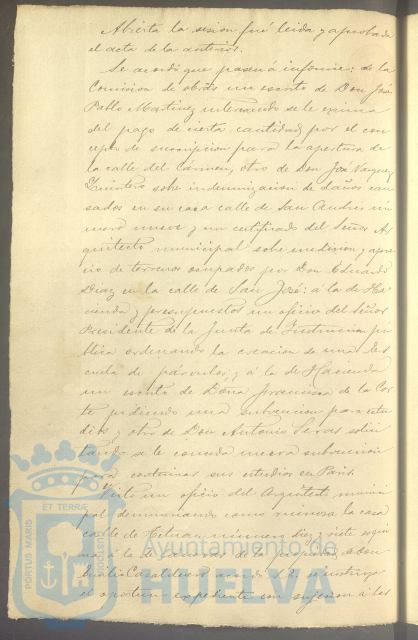 Abierta la sesion fué leida y aprobada
el acta de la anterior.
Se acordó que pasen á informe: de la
Comision de obras un escrito de Don José
Pablo Martinez interesando se le exima
del pago de cierta cantidad por el con
cepto de suscripcion para la apertura de
la calle del Cármen, otro de Don José Vazquez
Quintero sobre indemnizacion de daños cau
sados en su casa calle de San Andrés nú
mero nueve y un certificado del Señor Ar
quitecto municipal sobre medicion y apre
cio de terrenos ocupados por Don Eduardo
Diaz en la calle de San José: á la de Ha
cienda y presupuestos un oficio del Señor
Presidente de la Junta de Instruccion pú
blica ordenando la creacion de una Es
cuela de párvulos; y á la de Hacienda
un escrito de Doña Francisca de la Cor
te pidiendo una subvencion para estu
dios y otro de Don Antonio solici
tando se le conceda nueva subvencion
para continuar sus estudios en Paris.
Visto un oficio del Arquitecto munici
pal denunciando como ruinosa la casa
calle de Tetuan número diez y siete
á la de la propiedad de Don
se instruya
el oportuno expediente con sujecion á las
PORTUS MARIS ET TERRAE CUSTODIA
Ayuntamiento de
HUELVA